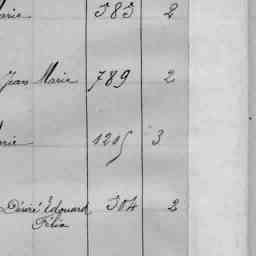 arie 383 2
Jean Marie 789 2
arie 1215 3
Désiré Edouard 304 2
Félix